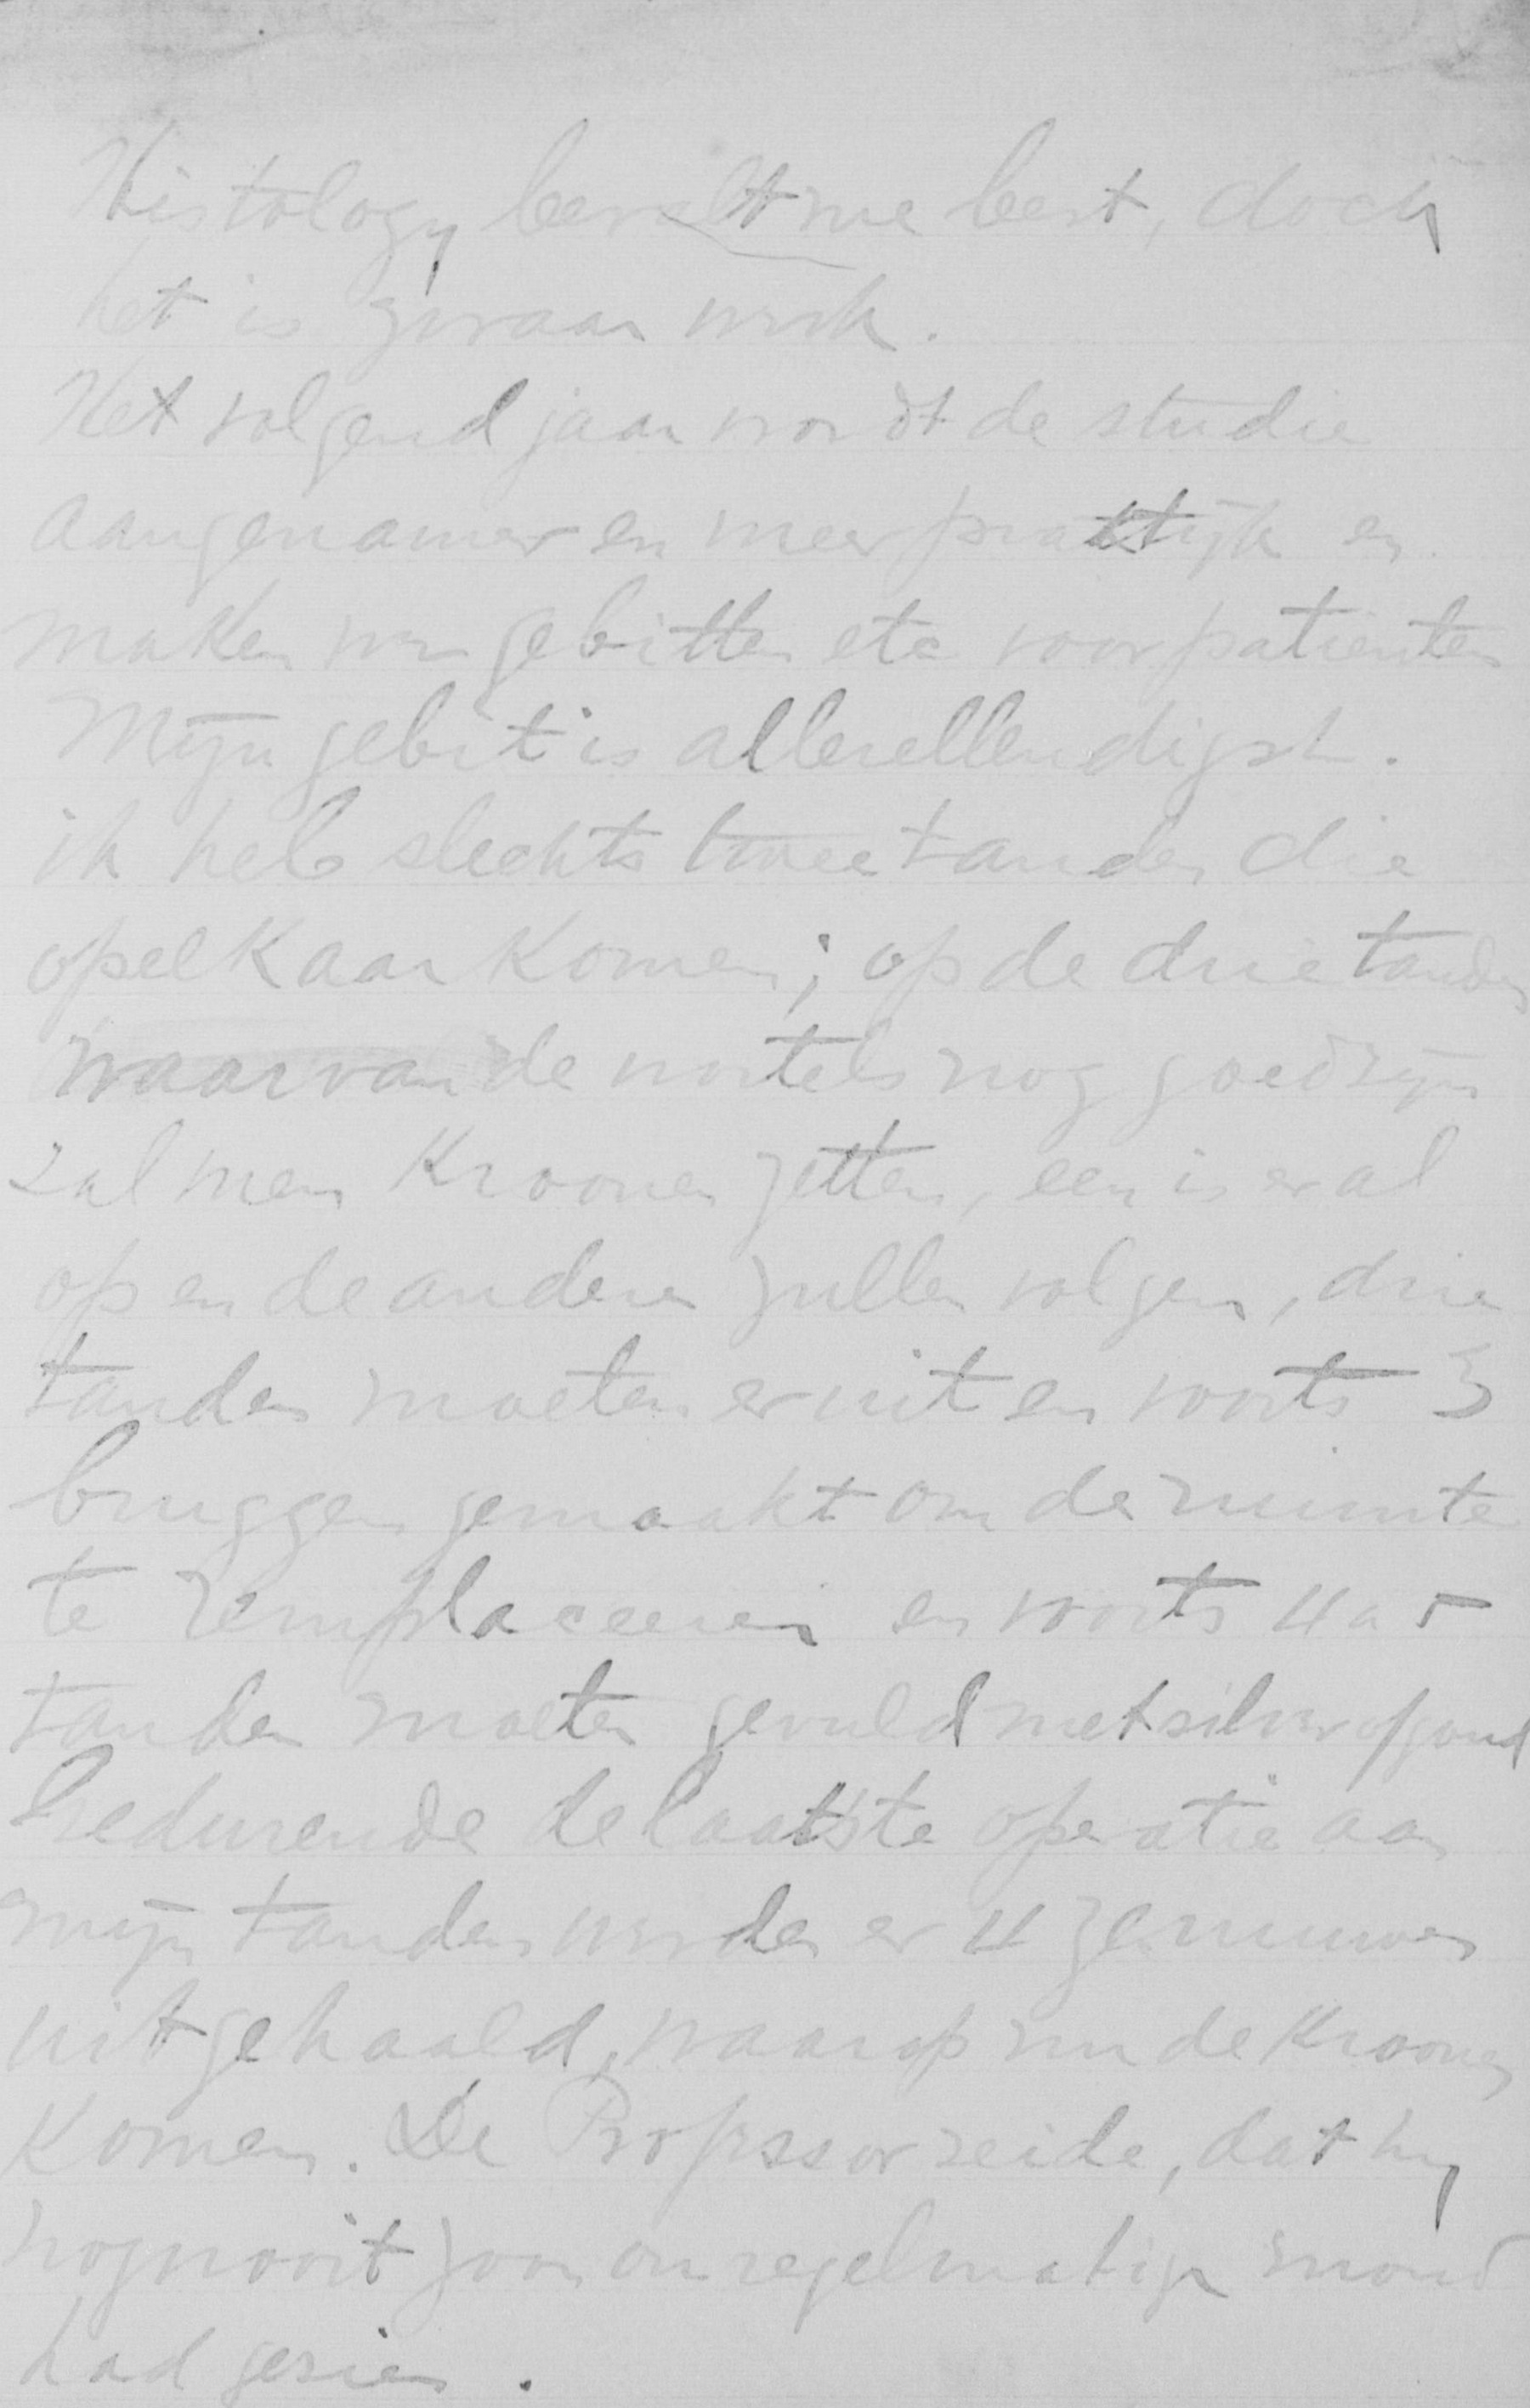 Histology bevalt me best, doch
het is zwaar werk.
Het volgend jaar wordt de studie
aangenamer en meer praktijk en
maken we gebitten etc voor patienten
Mijn gebit is allerellendigst.
ik heb slechts twee tanden die
op elkaar komen; op de drie tanden
waarvan de wortels nog goed zijn
zal men Kroonen zetten, een is er al
op en de anderen zullen volgen, drie
tanden moeten er uit en voorts 3
bruggen gemaakt om de ruimte
te remplaceeren en voorts 4 a 5
tanden moeten gevuld met silver of goud
Gedurende de laatste operatie aan
mijn tanden werden er 4 zenuwen
uitgehaald, waarop nu de Kroonen
Komen. De Professor zeide, dat hij
nog nooit zoon onregelmatige mond
had gezien.